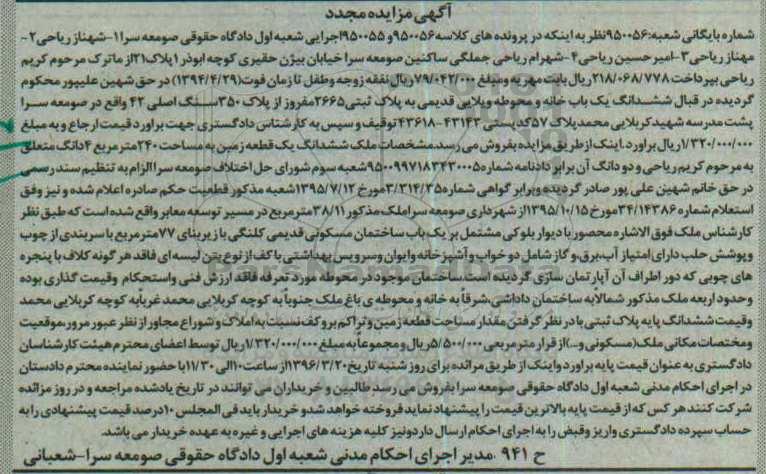 آگهی مزایده مجدد
شماره بایگانی شعبه:۹۵۰۰۵۶نظر به اینکه در پرونده های کلاسه۹۵۰۰۵۶و۹۵۰۰۵۵اجرایی شعبه اول دادگاه حقوقی صومعه سرا۱-شهناز ریاحی۲-
مهناز ریاحی۳-امیر حسین ریاحی۴-شهرام ریاحی جملگی ساکنین صومعه سرا خیابان بیژن حقیری کوچه ابوذر۱پلاک۲۱از ماترک مرحوم کریم
ریاحی بپرداخت۲۱۸/۰۶۸/۷۷۸ریال بابت مهریه ومبلغ۷۹/۰۴۲/۰۰۰ریال نفقه زوجه وطفل تا زمان فوت(۱۳۹۴/۴/۲۹) در حق شهین علیپور محکوم
گردیده در قبال ششدانگ یک باب خانه و محوطه ویلایی قدیمی به پلاک ثبتی۲۶۶۵مفروز از پلاک۳۵۰سنگ اصلی۴۲ واقع در صومعه سرا
پشت مدرسه شهید کربلایی محمد پلاک۵۷کد پستی۴۳۱۴۳-۴۳۶۱۸توقیف و سپس به کارشناس دادگستری جهت براورد قیمت ارجاع و به مبلغ
۱/۳۲۰/۰۰۰/۰۰۰ریال براورد.اینک از طریق مزایده بفروش می رسد.مشخصات ملک ششدانگ یک قطعه زمین به مساحت۲۴۰متر مربع ۴دانگ متعلق
به مرحوم کریم ریاحی و دو دانگ آن برابر دادنامه شماره۹۵۰۰۹۹۷۱۸۳۴۳۰۰۰۵شعبه سوم شورای حل اختلاف صومعه سرا الزام به تنظیم سند رسمی
در حق خانم شهین علی پور صادر گردیده وبرابر گواهی شماره۳/۳۱۴/۳۵مورخ۱۳۹۵/۷/۱۲شعبه مذکور قطعیت حکم صادره اعلام شده و نیز وفق
استعلام شماره۳۴/۱۴۳۸۶مورخ۱۳۹۵/۱۰/۱۵از شهرداری صومعه سرا ملک مذکور۳۸/۱۱متر مربع در مسیر توسعه معابر واقع شده است که طبق نظر
کارشناس ملک فوق الاشاره محصور با دیوار بلوکی مشتمل بر یک باب ساختمان مسکونی قدیمی کلنگی با زیر بنای۷۷متر مربع با سربندی از چوب
وپوشش حلب دارای امتیاز آب،برق،و گاز شامل دو خواب و آشپزخانه وایوان وسرویس بهداشتی با کف از نوع بتن لیسه ای فاقد هر گونه کلاف با پنجره
های چوبی که دور اطراف آن آپارتمان سازی گردیده است.ساختمان موجود در محوطه مورد تعرفه فاقد ارزش فنی واستحکام وقیمت گذاری بوده
وحدود اربعه ملک مذکور شمالابه ساختمان داداشی،شرقا به خانه و محوطه ی باغ ملک جنوبا به کوچه کربلایی محمد غربابه کوچه کربلایی محمد
وقیمت ششدانگ پایه پلاک ثبتی با در نظر گرفتن مقدار مساحت قطعه زمین و تراکم بر وکف نسبت به املاک و شوراع مجاور از نظر عبور مرور،موقعیت
ومختصات مکانی ملک(مسکونی و...)از قرار متر مربعی ۵/۵۰۰/۰۰۰ریال و مجموعا به مبلغ۱/۳۲۰/۰۰۰/۰۰۰ریال توسط اعضای محترم هیئت کارشناسان
دادگستری به عنوان قیمت پایه براورد واینک از طریق مزائده برای روز شنبه تاریخ۱۳۹۶/۳/۲۰از ساعت۱۰الی۱۱/۳۰با حضور نماینده محترم دادستان
در اجرای احکام مدنی شعبه اول دادگاه حقوقی صومعه سرا بفروش می رسد طالبین و خریداران می توانند در تاریخ یادشده مراجعه و در روز مزائده
شرکت کنند هر کس که از قیمت پایه بالاترین قیمت را پیشنهاد نماید فروخته خواهد شد و خریدار باید فی المجلس۱۰درصد قیمت پیشنهادی را به
حساب سپرده دادگستری واریز وقبض را به اجرای احکام ارسال دارد ونیز کلیه هزینه های اجرایی و غیره به عهده خریدار می باشد.
ح ۹۴۱ مدیر اجرای احکام مدنی شعبه اول دادگاه حقوقی صومعه سرا-شعبانی
ParsNamadData